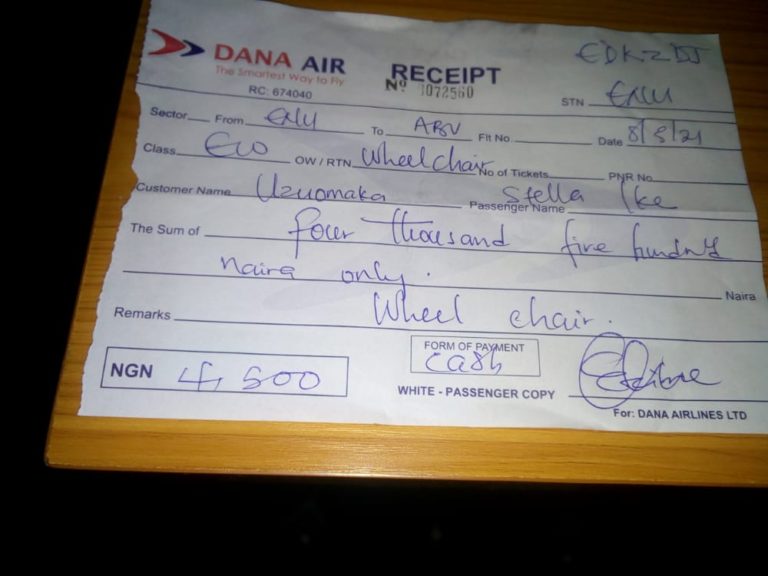 DANA AIR
The Smartest Way to Fly
RC: 674040
RECEIPT
Nº 3072560
EDKZDJ
STN ENU
Sector From ENU To ABV Flt No. Date 8/5/21
Class Eco OW / RTN Wheelchair No of Tickets PNR No.
Customer Name Uzuomaka Passenger Name Stella Ike
The Sum of four thousand five hundred
naira only. Naira
Remarks Wheel chair.
NGN 4,500
FORM OF PAYMENT
cash
WHITE - PASSENGER COPY
For: DANA AIRLINES LTD